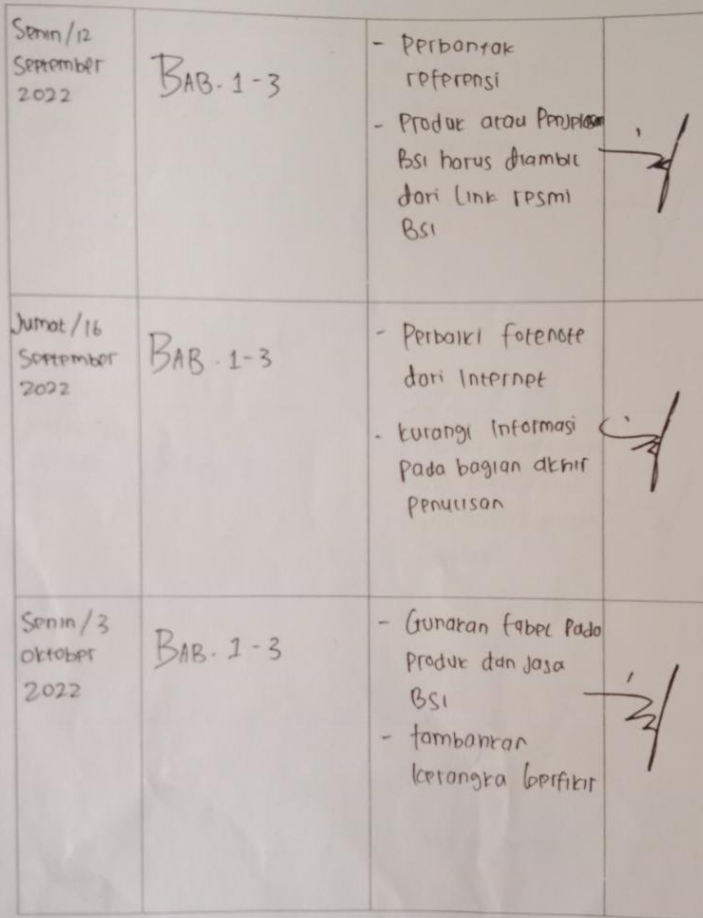 Senin/12
September
2022
BAB. 1-3
- Perbanyak
referensi
- Produk atau Penjelasan
BSI harus diambil
dari link resmi
BSI
Jumat/16
September
2022
BAB. 1-3
- Perbaiki fotenote
dari Internet
- kurangi Informasi
pada bagian akhir
penulisan
Senin/3
oktober
2022
BAB. 1-3
- Gunakan tabel Pada
Produk dan Jasa
BSI
- tambahkan
kerangka berfikir